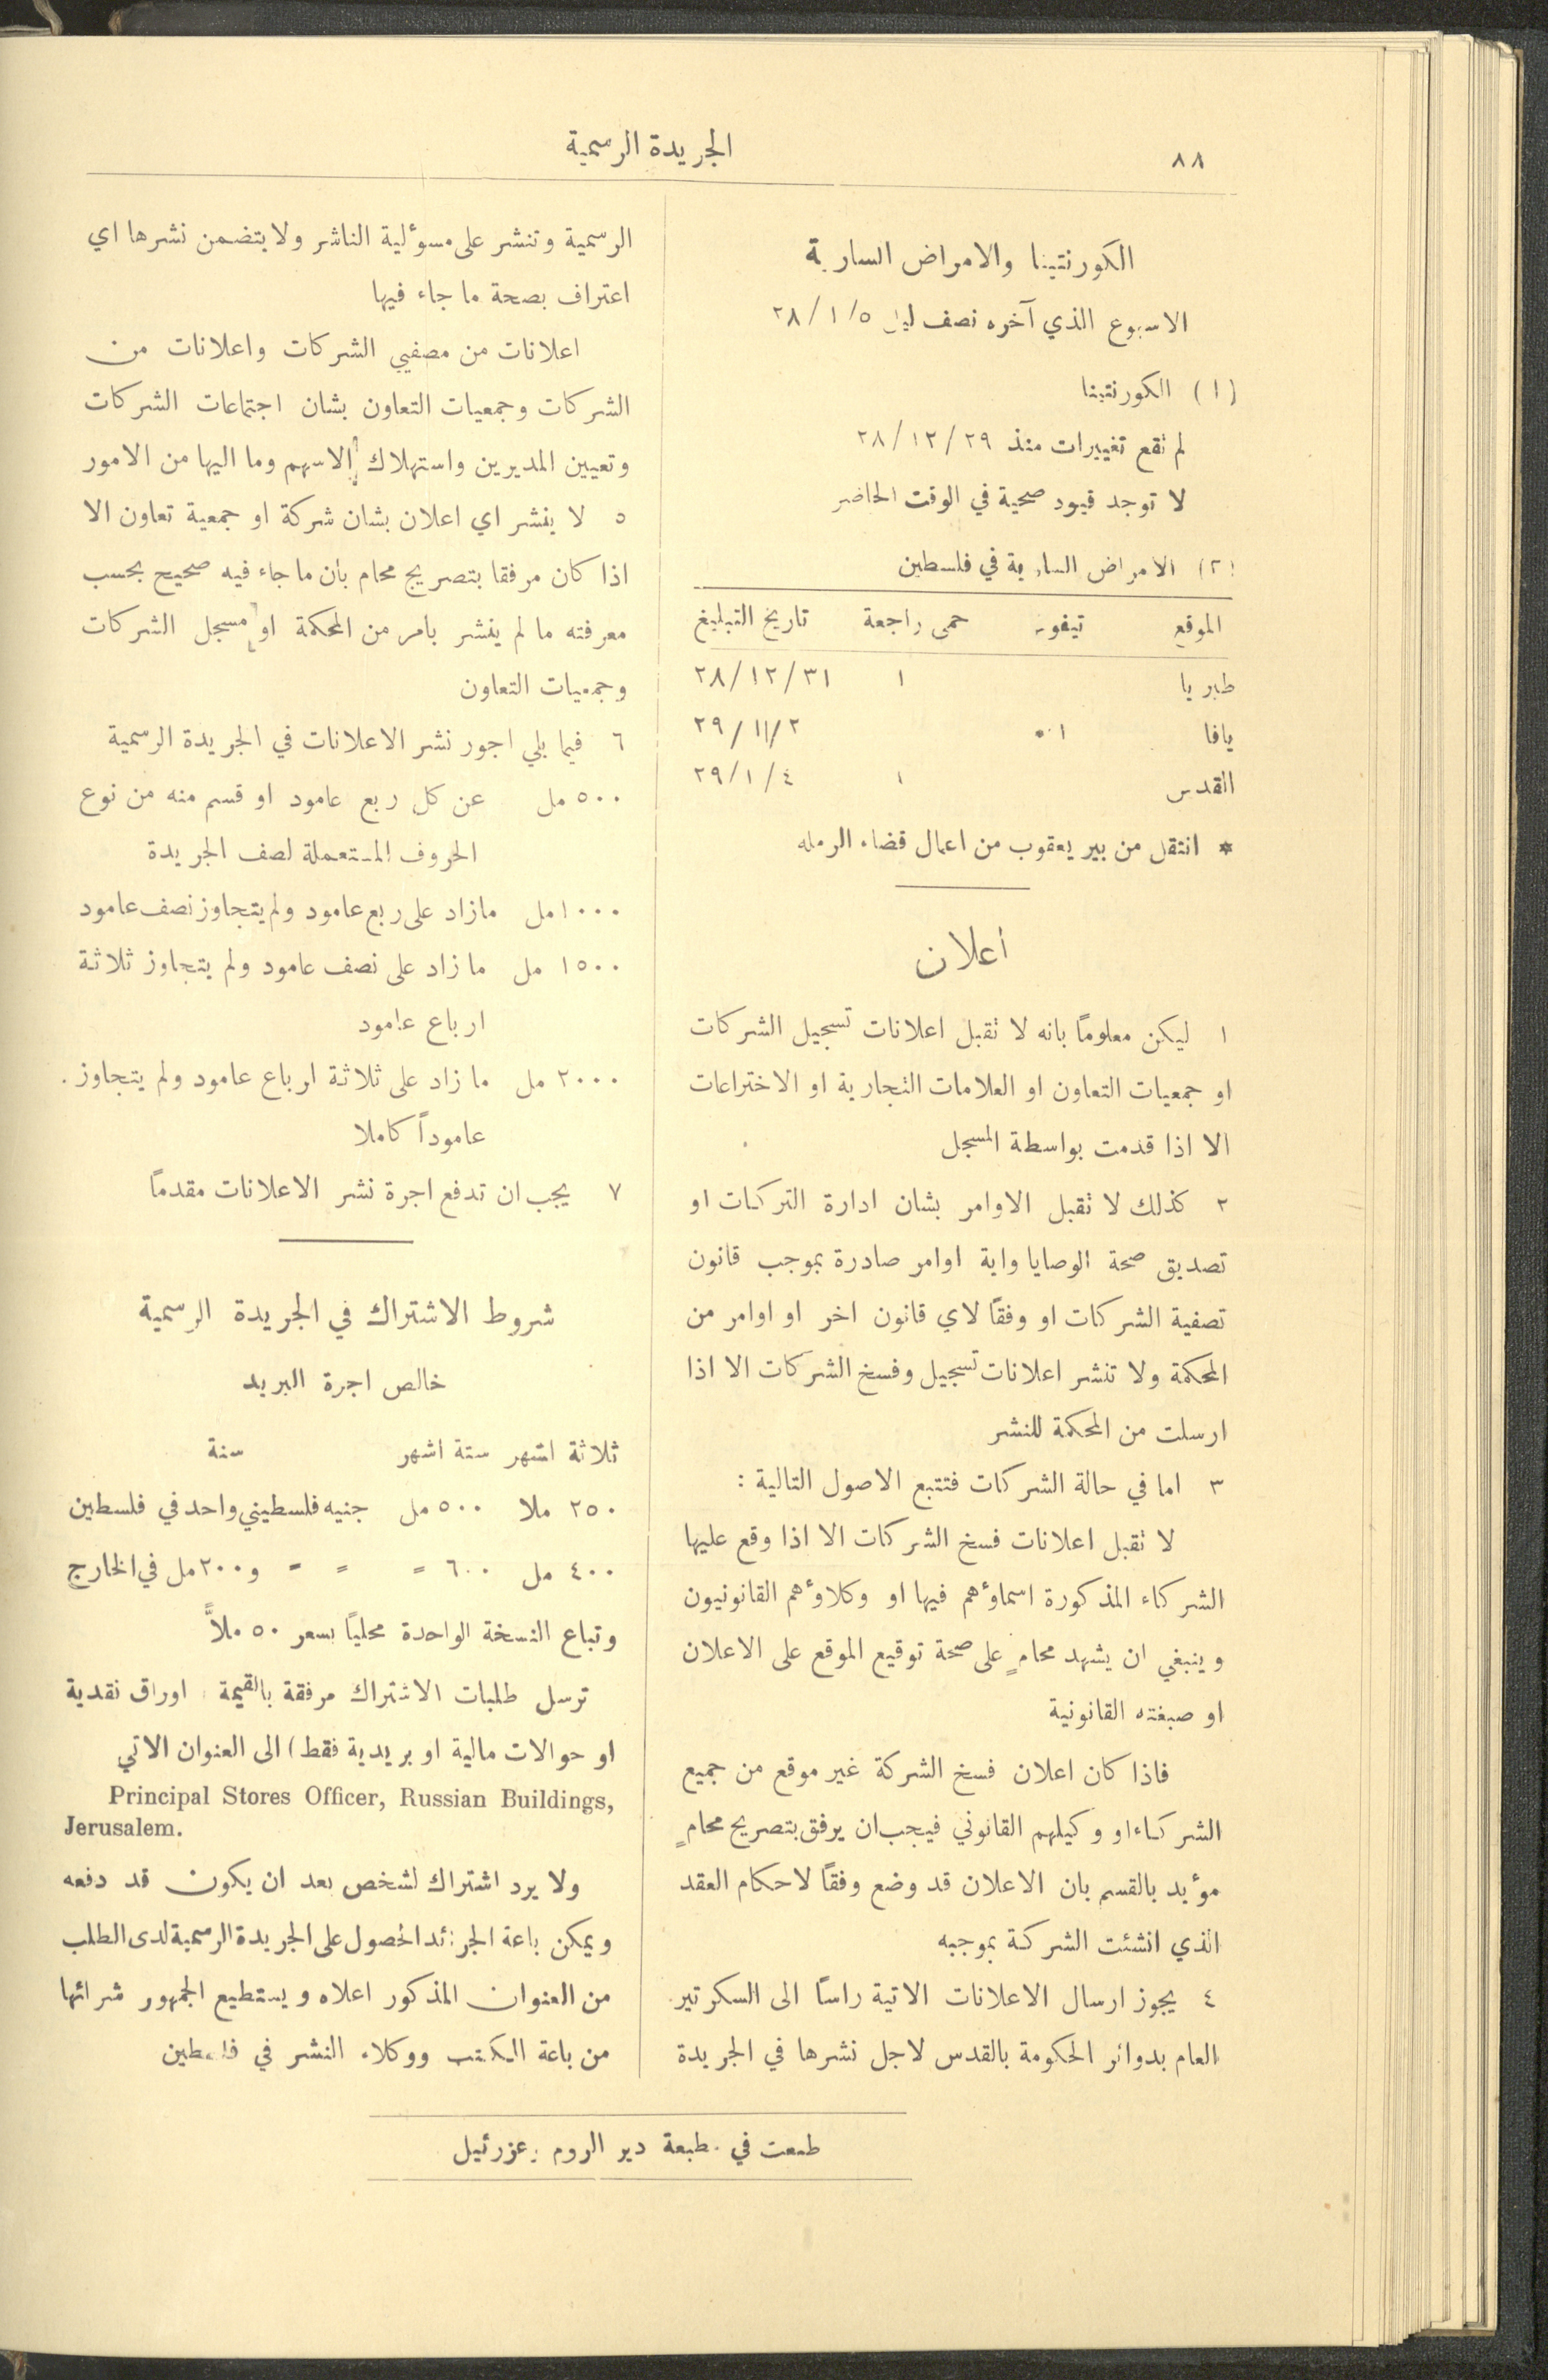 ٨٨
الجريدة الرسمية
الكورنتينا والامراض السارية
الاسبوع الذي آخره نصف ليل ٥/ ١ /٢٨
(١) الكورنتينا
لم تقع تغييرات منذ ٢٩ /١٢ /٢٨
لا توجد قيود صحية في الوقت الحاضر
(٢) الامراض السارية في فلسطين
الموقع تيفوس حمى راجعة تاريخ التبليغ
طبريا ١ ٢٨/١٢/٣١
يافا ١* ٢٩/١١/٢
القدس ١ ٢٩/١/٤
* انتقل من بير يعقوب من اعمال قضاء الرمله
اعلان
١ ليكن معلوماً بانه لا تقبل اعلانات تسجيل الشركات
او جمعيات التعاون او العلامات التجارية او الاختراعات
الا اذا قدمت بواسطة المسجل
٢ كذلك لا تقبل الاوامر بشان ادارة التركات او
تصديق صحة الوصايا واية اوامر صادرة بموجب قانون
تصفية الشركات او وفقاً لاي قانون اخر او اوامر من
المحكمة ولا تنشر اعلانات تسجيل وفسخ الشركات الا اذا
ارسلت من المحكمة للنشر
٣ اما في حالة الشركات فتتبع الاصول التالية :
لا تقبل اعلانات فسخ الشركات الا اذا وقع عليها
الشركاء المذكورة اسماؤهم فيها او وكلاؤهم القانونيون
وينبغي ان يشهد محامٍ على صحة توقيع الموقع على الاعلان
او صبغته القانونية
فاذا كان اعلان فسخ الشركة غير موقع من جميع
الشركاء او وكيلهم القانوني فيجب ان يرفق بتصريح محامٍ
مؤيد بالقسم بان الاعلان قد وضع وفقاً لاحكام العقد
الذي انشئت الشركة بموجبه
٤ يجوز ارسال الاعلانات الاتية راساً الى السكرتير
العام بدوائر الحكومة بالقدس لاجل نشرها في الجريدة
الرسمية وتنشر على مسؤلية الناشر ولا يتضمن نشرها اي
اعتراف بصحة ما جاء فيها
اعلانات من مصفيي الشركات واعلانات من
الشركات وجمعيات التعاون بشان اجتماعات الشركات
وتعيين المديرين واستهلاك الاسهم وما اليها من الامور
٥ لا ينشر اي اعلان بشان شركة او جمعية تعاون الا
اذا كان مرفقا بتصريح محام بان ما جاء فيه صحيح بحسب
معرفته ما لم ينشر بامر من المحكمة او مسجل الشركات
وجمعيات التعاون
٦ فيما يلي اجور نشر الاعلانات في الجريدة الرسمية
٥٠٠ مل عن كل ربع عامود او قسم منه من نوع
الحروف المستعملة لصف الجريدة
١٠٠٠ مل مازاد على ربع عامود ولم يتجاوز نصف عامود
١٥٠٠ مل ما زاد على نصف عامود ولم يتجاوز ثلاثة
ارباع عامود
٢٠٠٠ مل ما زاد على ثلاثة ارباع عامود ولم يتجاوز.
عاموداً كاملا
٧ يجب ان تدفع اجرة نشر الاعلانات مقدماً
شروط الاشتراك في الجريدة الرسمية
خالص اجرة البريد
ثلاثة اشهر ستة اشهر سنة
٢٥٠ ملا ٥٠٠ مل جنيه فلسطيني واحد في فلسطين
٤٠٠ مل ٦٠٠ = = = و٢٠٠ مل في الخارج
وتباع النسخة الواحدة محلياً بسعر ٥٠ ملاً
ترسل طلبات الاشتراك مرفقة بالقيمة ( اوراق نقدية
او حوالات مالية او بريدية فقط) الى العنوان الاتي
Principal Stores Officer, Russian Buildings,
Jerusalem.
ولا يرد اشتراك لشخص بعد ان يكون قد دفعه
ويمكن باعة الجرائد الحصول على الجريدة الرسمية لدى الطلب
من العنوان المذكور اعلاه ويستطيع الجمهور شرائها
من باعة الكتب ووكلاء النشر في فلسطين
طبعت في مطبعة دير الروم بعزرئيل